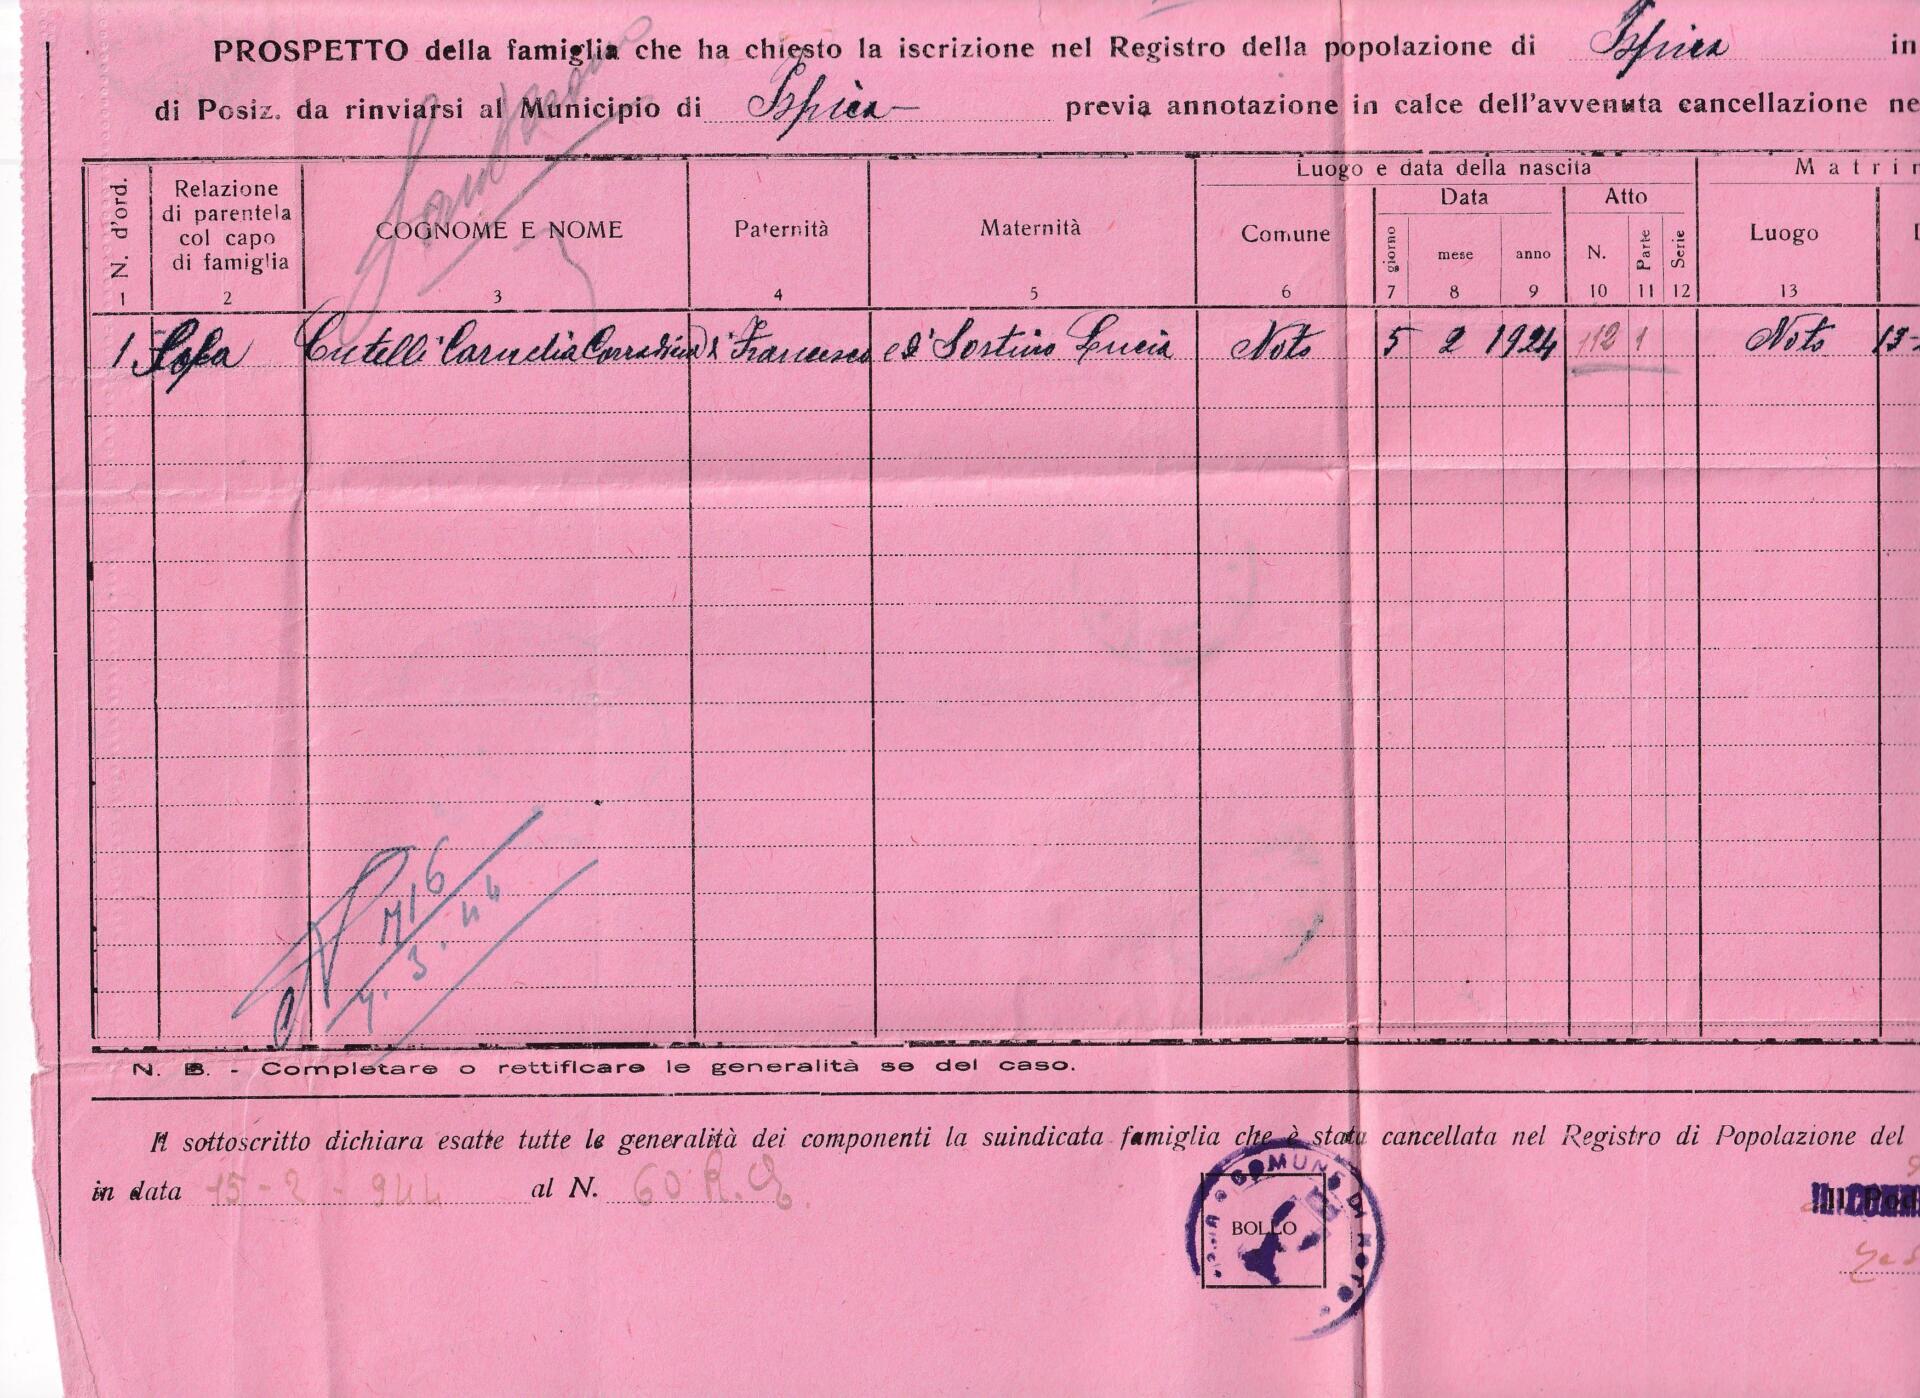 PROSPETTO della famiglia che ha chiesto la iscrizione nel Registro della popolazione di Ispica in
di Posiz. da rinviarsi al Municipio di Ispica previa annotazione in calce dell'avvenuta cancellazione ne
Luogo e data della nascita Matrin
N. d'ord. Relazione di parentela col capo di famiglia COGNOME E NOME Paternità Maternità Comune Data Atto Luogo
giorno mese anno N. Parte Serie
1 2 3 4 5 6 7 8 9 10 11 12 13
1 Cutelli Corradina di Francesco e di Sortino Lucia Noto 5 2 1924 112 1 Noto 13
716
4. 3. 44
N. B. - Completare o rettificare le generalità se del caso.
Il sottoscritto dichiara esatte tutte le generalità dei componenti la suindicata famiglia che è stata cancellata nel Registro di Popolazione del
in data 15-2-944 al N. 60 R.
COMUNE DI NOTO
BOLLO
Il Pod